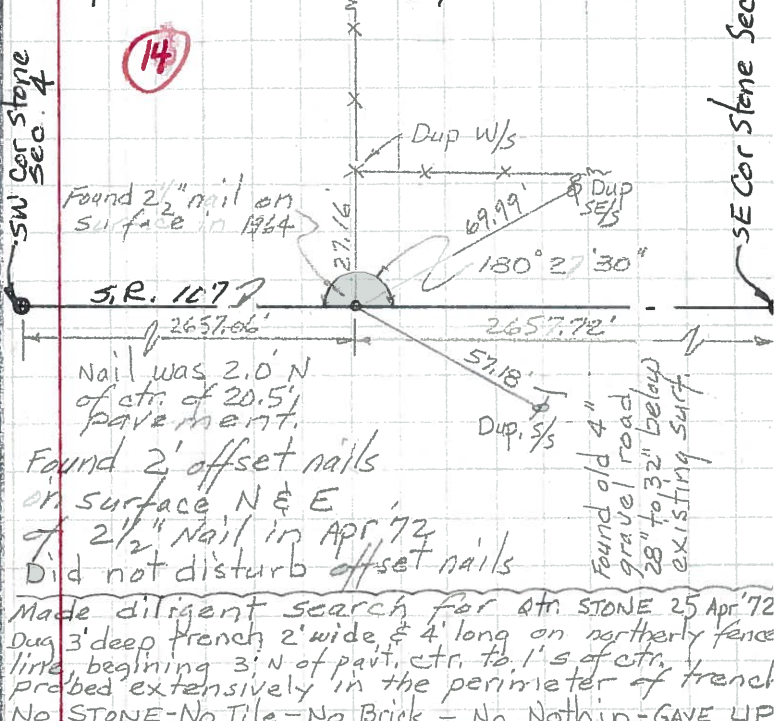 14
SW Cor Stone
Sec. 4
SE Cor Stone Sec
Dup W/s
Found 2½" nail on
surface in 1964
27.16'
69.99'
Dup
SE/s
180° 27' 30"
S.R. 167
2657.06'
2657.72'
57.18'
Dup. S/s
Nail was 2.0' N
of ctr. of 20.5'
pavement.
Found 2' offset nails
on surface N & E
of 2½" Nail in Apr '72
Did not disturb offset nails
Found old 4"
gravel road
28" to 32" below
existing surf.
Made diligent search for Qtr STONE 25 Apr '72
Dug 3' deep trench 2' wide & 4' long on northerly fence
line, begining 3' N of pavt. ctr. to 1' S of ctr.
Probed extensively in the perimeter of trench
No STONE - No Tile - No Brick - No Nothin - GAVE UP